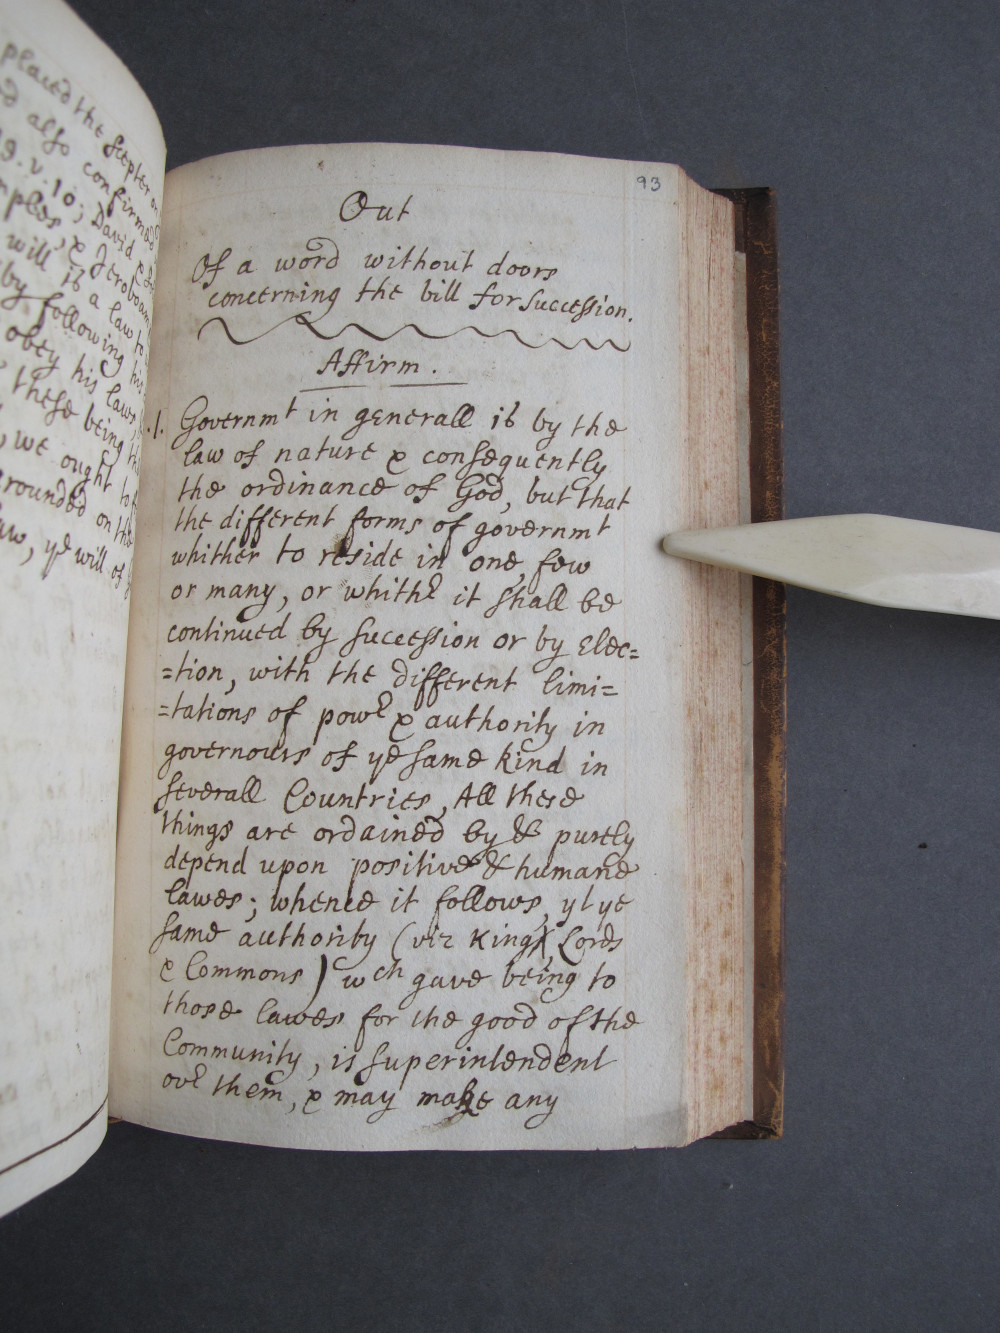 placed the scepter on
also confirmed
v. 10; David &
& Jeroboam
will is a law to
by following his
obey his laws,
these being the
, we ought to
grounded on the
law, ye will of
93
Out
Of a word without doors
concerning the bill for Succession.
Affirm.
.1. Governmt in generall is by the
law of nature & consequently
the ordinance of God, but that
the different forms of governmt
whither to reside in one, few
or many, or whithr it shall be
continued by succession or by Elec=
=tion, with the different limi=
=tations of powr & authority in
governours of ye same kind in
severall Countries, All these
things are ordained by & purely
depend upon positive & humane
lawes; whence it follows, yt ye
same authority (viz King, Lords
& Commons) wch gave being to
those lawes for the good of the
Community, is superintendent
ovr them, & may make any